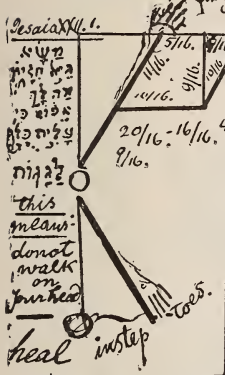 Jesaia XXII. 1.
משא
גיא חזיון
מה לך
אפוא כי
עלית כלך
לגגות
this
means:
do not
walk
on
your head
heal
instep
toes.
5/16.
11/16.
9/16.
10/16
20/16-16/16.
9/16.